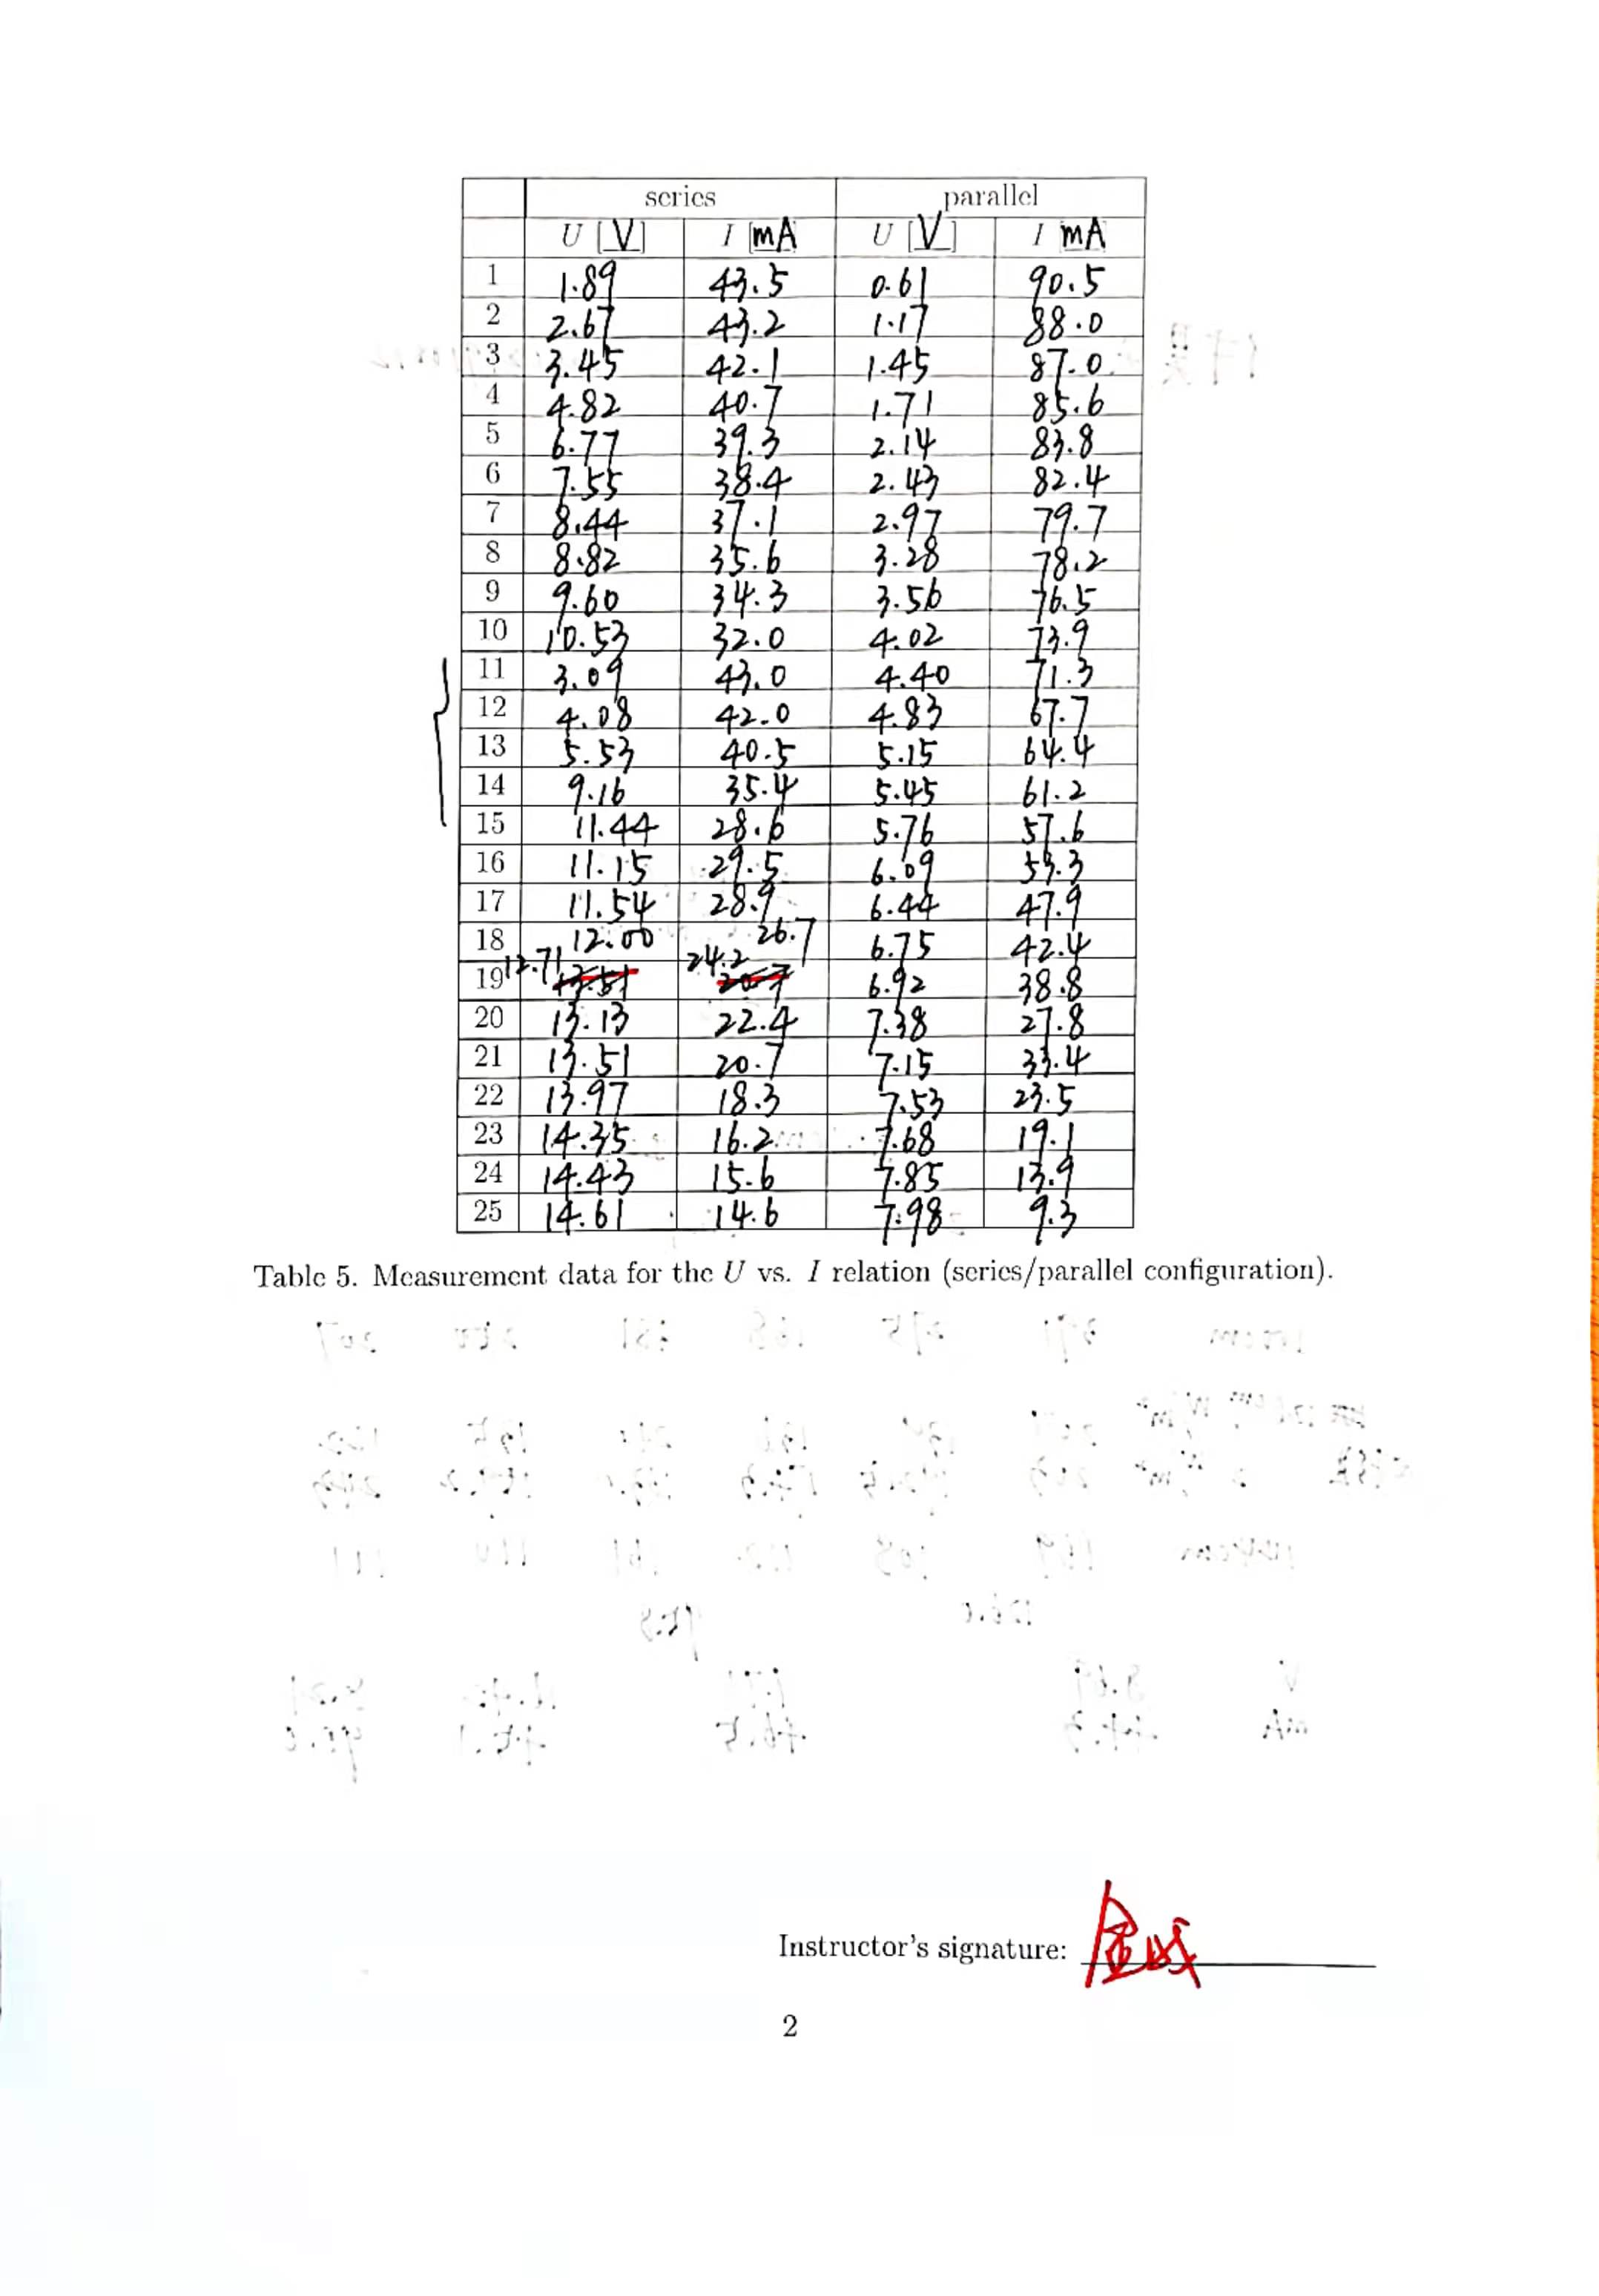 series parallel
U [V] I [mA] U [V] I [mA]
1 1.89 43.5 0.61 90.5
2 2.67 43.2 1.17 88.0
3 3.45 42.1 1.45 87.0
4 4.82 40.7 1.71 85.6
5 6.77 39.3 2.14 83.8
6 7.55 38.4 2.43 82.4
7 8.44 37.1 2.97 79.7
8 8.82 35.6 3.28 78.2
9 9.60 34.3 3.56 76.5
10 10.53 32.0 4.02 73.9
11 3.09 43.0 4.40 71.3
12 4.08 42.0 4.83 67.7
13 5.53 40.5 5.15 64.4
14 9.16 35.4 5.45 61.2
15 11.44 28.6 5.76 57.6
16 11.15 29.5 6.09 53.3
17 11.54 28.9 6.44 47.9
18 12.00 26.7 6.75 42.4
19 12.71 13.51 24.2 20.7 6.92 38.8
20 13.13 22.4 7.38 27.8
21 13.51 20.7 7.15 33.4
22 13.97 18.3 7.53 23.5
23 14.35 16.2 7.68 19.1
24 14.43 15.6 7.85 13.9
25 14.61 14.6 7.98 9.3
Table 5. Measurement data for the U vs. I relation (series/parallel configuration).
Instructor's signature:
2